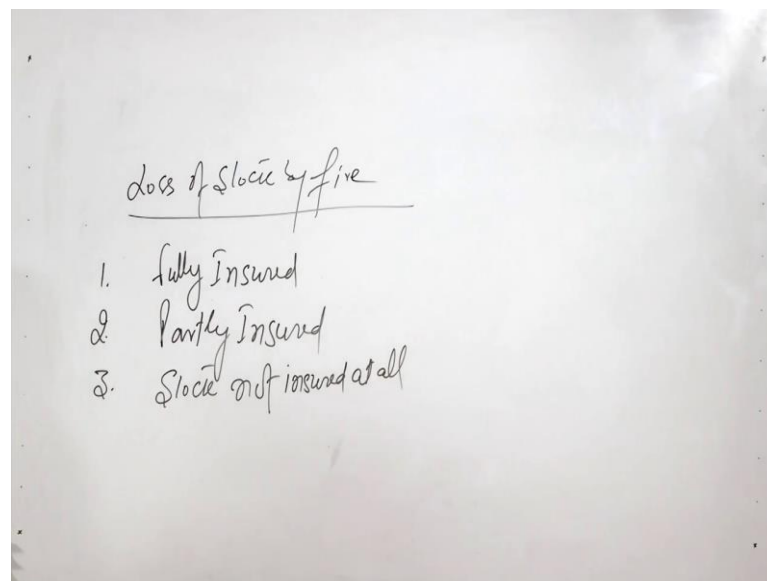 Loss of Stock by fire
1. Fully Insured
2. Partly Insured
3. Stock not insured at all